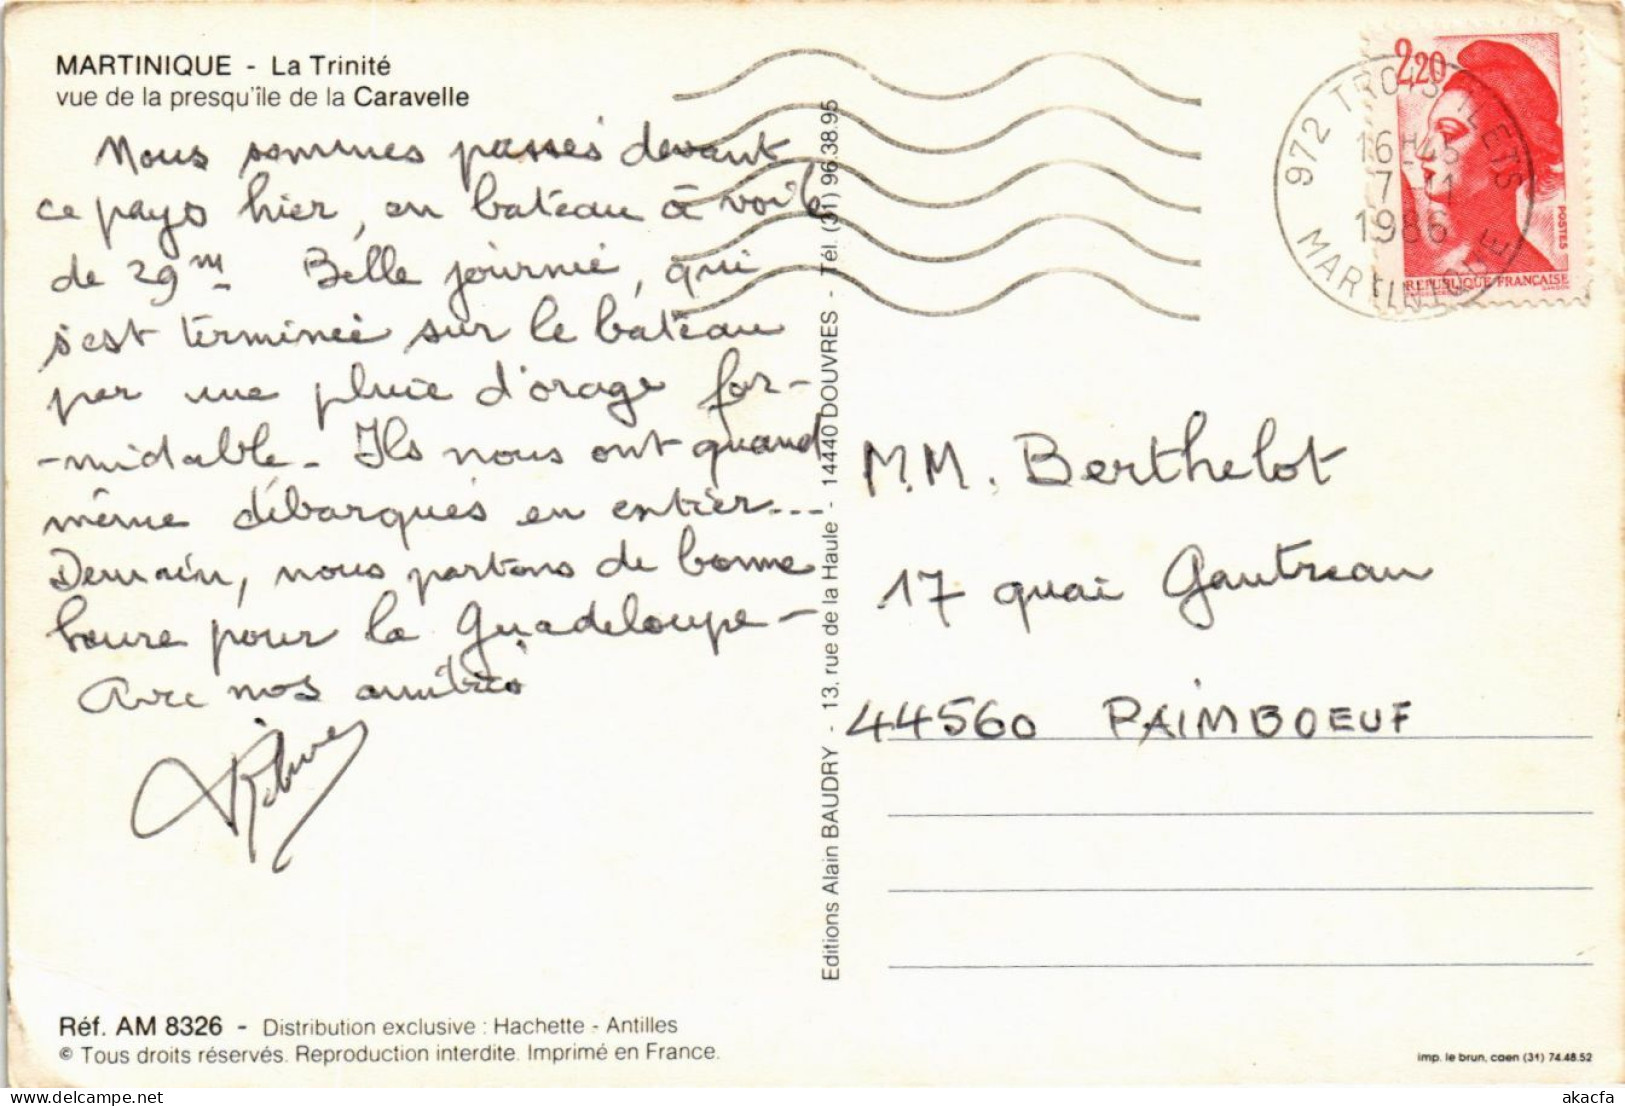 MARTINIQUE - La Trinité
vue de la presqu'île de la Caravelle
Nous sommes passés devant
ce pays hier, en bateau à voile
de 29 m Belle journée, qui
s'est terminée sur le bateau
par une pluie d'orage for-
-midable - Ils nous ont quand
même débarqués en entier...
Demain, nous partons de bonne
heure pour la Guadeloupe -
Avec nos amitiés
Editions Alain BAUDRY - 13, rue de la Haule - 14440 DOUVRES - Tél. (31) 96.38.95
2,20
POSTES
REPUBLIQUE FRANÇAISE
GANDON
972 TROIS-ILETS
16H45
7-11
1986
MARTINIQUE
M.M. Berthelot
17 quai Gautreau
44560 PAIMBOEUF
Réf. AM 8326 - Distribution exclusive : Hachette - Antilles
© Tous droits réservés. Reproduction interdite. Imprimé en France.
imp. le brun, caen (31) 74.48.52
delcampe.net
akacfa